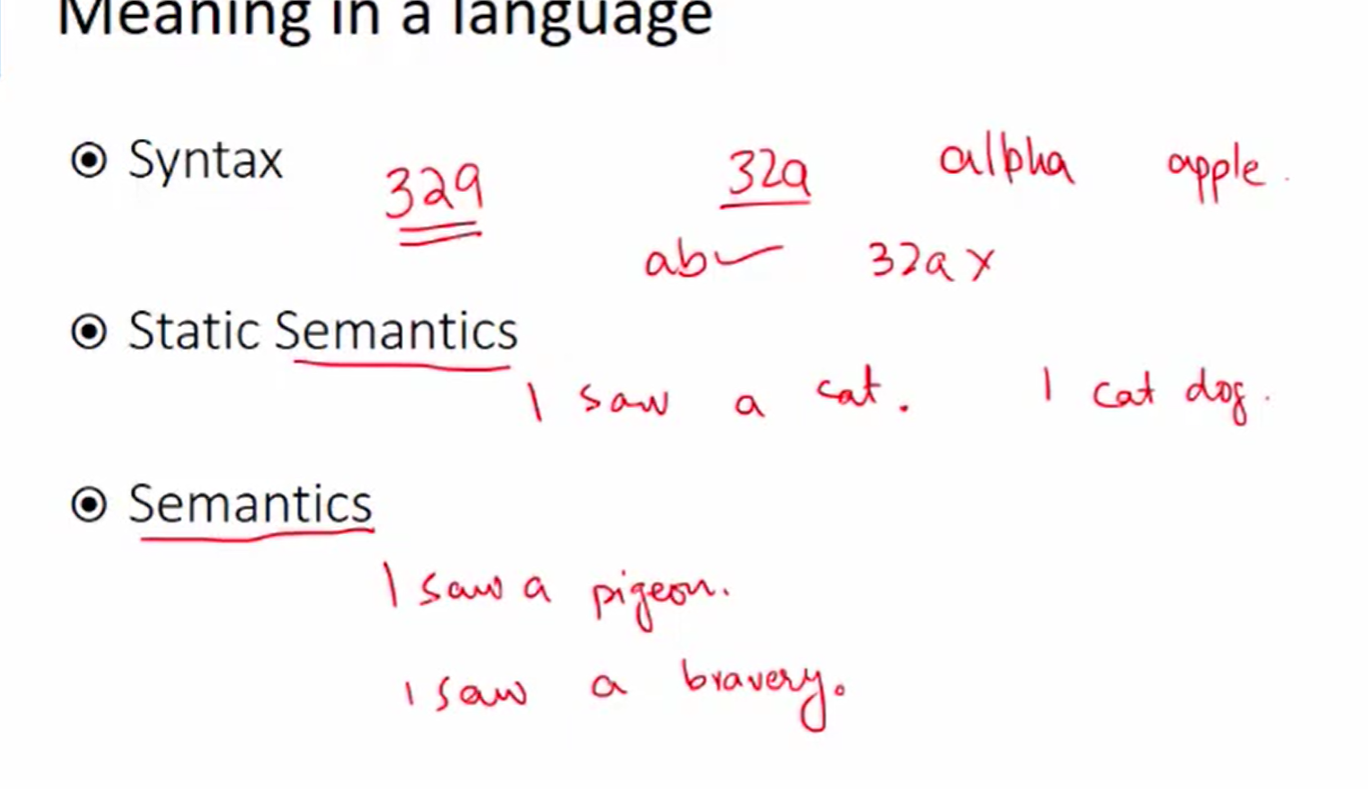 Meaning in a language
Syntax 329 32a alpha apple.
ab 32a x
Static Semantics
I saw a cat. I cat dog.
Semantics
I saw a pigeon.
I saw a bravery.